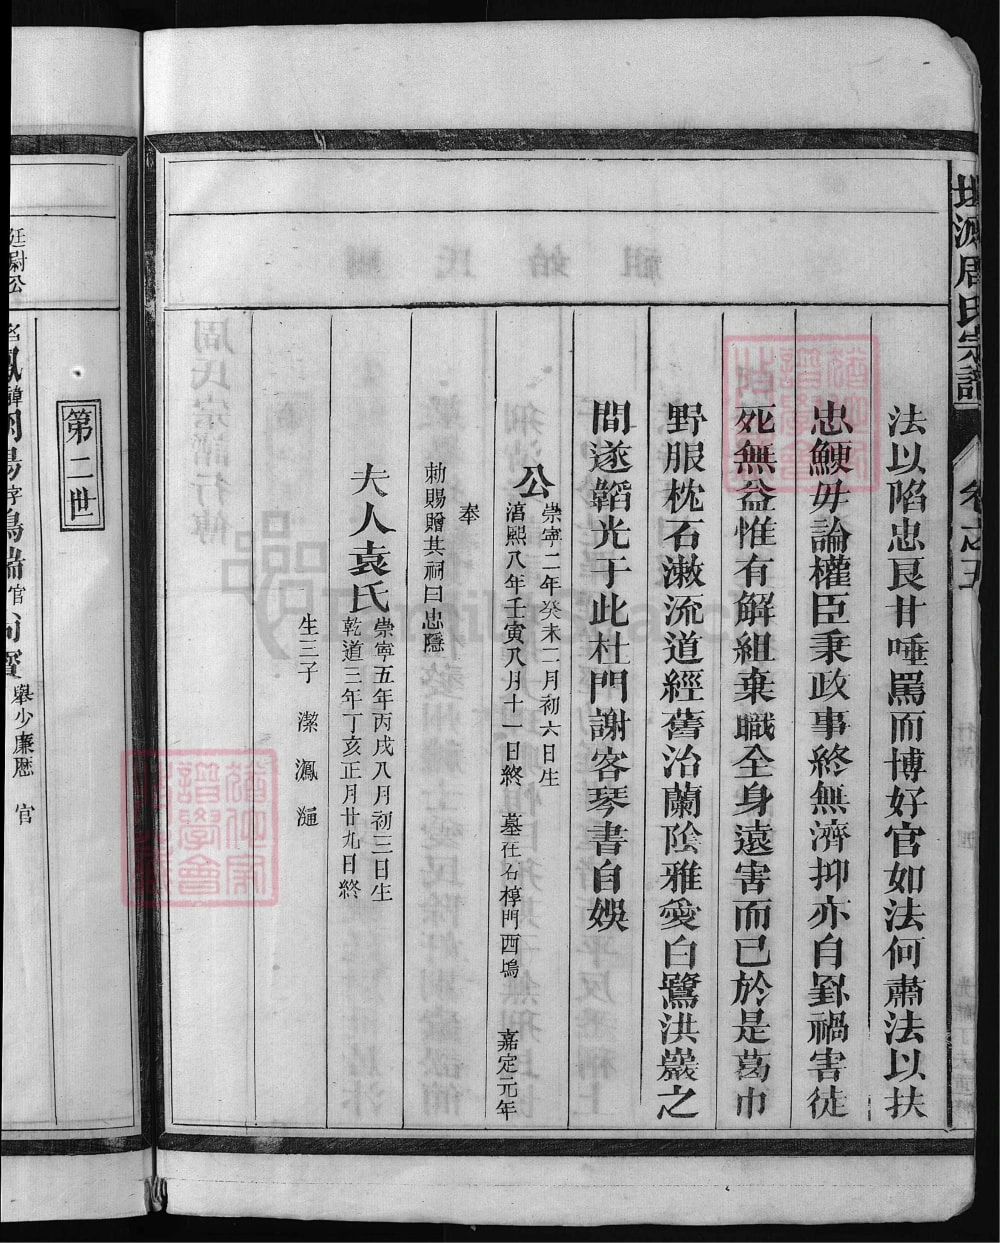 源周氏宗譜
卷之五
法以陷忠良甘唾罵而博好官如法何肅法以扶
忠鯁毋論權臣秉政事終無濟抑亦自罹禍害徒
死無益惟有解組棄職全身遠害而已於是葛巾
野服枕石漱流道經舊治蘭陰雅愛白鷺洪巖之
間遂韜光于此杜門謝客琴書自娛
公
崇寧二年癸未二月初六日生
淳熙八年壬寅八月十一日終 墓在石梓門西塢 嘉定元年
奉
勅賜贈其祠曰忠隱
夫人袁氏
崇寧五年丙戌八月初三日生
乾道三年丁亥正月廿九日終
生三子 潔 鳯 涵
第二世
廷尉公
舉少廉歷 官